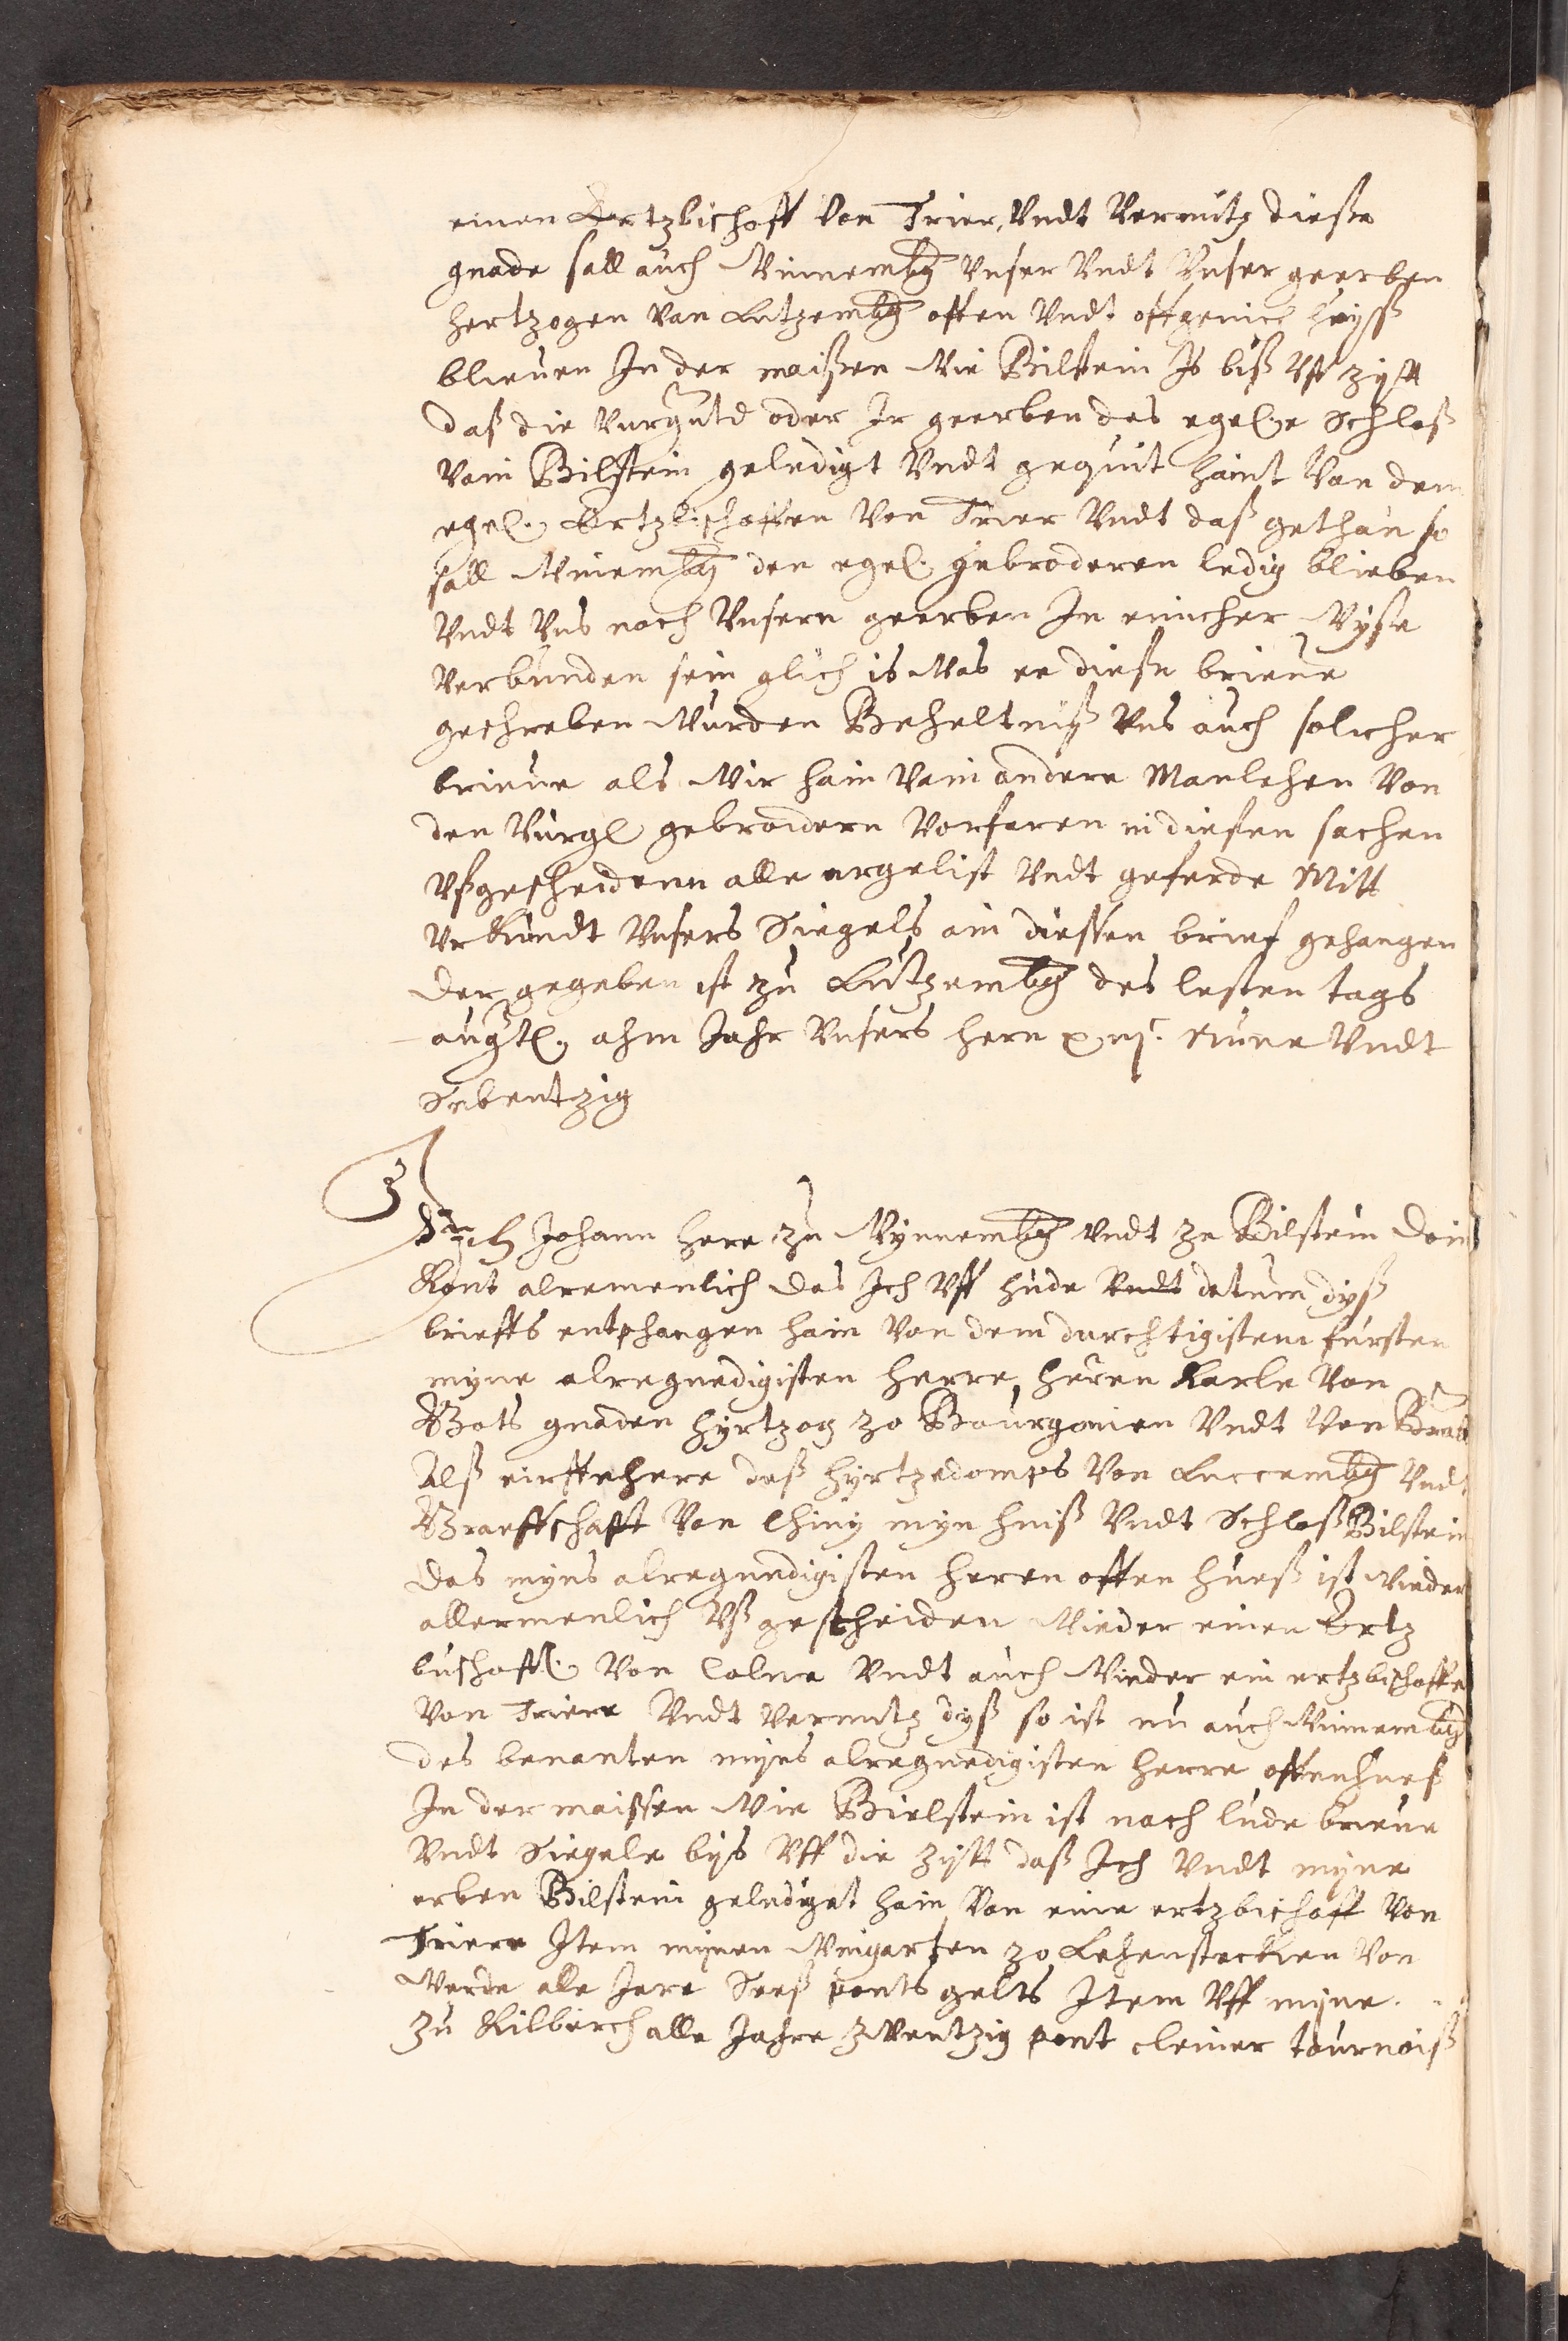 einen Ertzbischoff von Trier, Vndt Vermitz diesse
gnade sall auch Winnembg Vnser Vndt Vnser geerben
hertzogen van Lutzembg offen Vndt offgenich huyss
blieuen In der maißen Wie Bilstein Is biß Vff zytt
daß die Vurgntd oder Ir geerben des egel.e Schloß
Vain Bilstein geledigt Vndt gequit haint Van dem
egel. Ertzbischoffen Von Trier Vndt daß gethan so
sall Winembg den egel. gebroderen ledig blieben
Vndt Vns noch Vnsern geerben In eincher Wyse
Verbunden sein glich is Was ee diese brieue
geschreben Wurden Beheltniß Vns auch solicher
brieue als Wir hain Vain andere Manlehen Von
den Vurgl gebroidern Vorfaren in diesen sachen
Vßgescheidenn alle argelist Vndt geferde Mitt
Vrkundt Vnsers Siegels ain diessen brief gehangen
Der gegeben ist zu Lutzembg des lesten tags
augtl. ahm Jahr Vnsers hern nune Vndt
Sebentzig
Ich Johann here zu Wynnembg Vndt ze Bilstein Doin
Kont alremenlich das Ich Vff hude Vndt datum dyß
brieffs entphangen hain Van dem durchtigistem fursten
myne alregnedigisten herre, heren Karle Van
Gots gnaden hyrtzog zo Bourgonien Vndt Van Brab
Alß eirffhere deß hyrtzedomps Van Luccembg Vndt
Graeffschafft Van Chiny myn huiß Vndt Schloß Bilstein
Das myns alregnedigisten heren offen hueß ist Wieder
allermenlich Vßgescheiden Wieder einen Ertz
buschoffl. Von Colne Vndt auch Wieder ein ertzbischoffe
Van Triere Vndt Vermitz dyß so ist nu auch Winnembg
des benanten myns alregnedigisten herre offenhueß
In der maissen Wie Bielstein ist nach lude brieue
Vndt Siegele byß Vff die zytt daß Ich Vndt myne
erben Bilstein geledigt hain Van eine ertzbischoff Von
Triere Item mynen Wingarten zo Lehensteckien Von
Werde alle Jare Seeß ponts gelts Item Vff myne
zu Kilburch alle Jahre zwentzig pont cleiner tournoiß